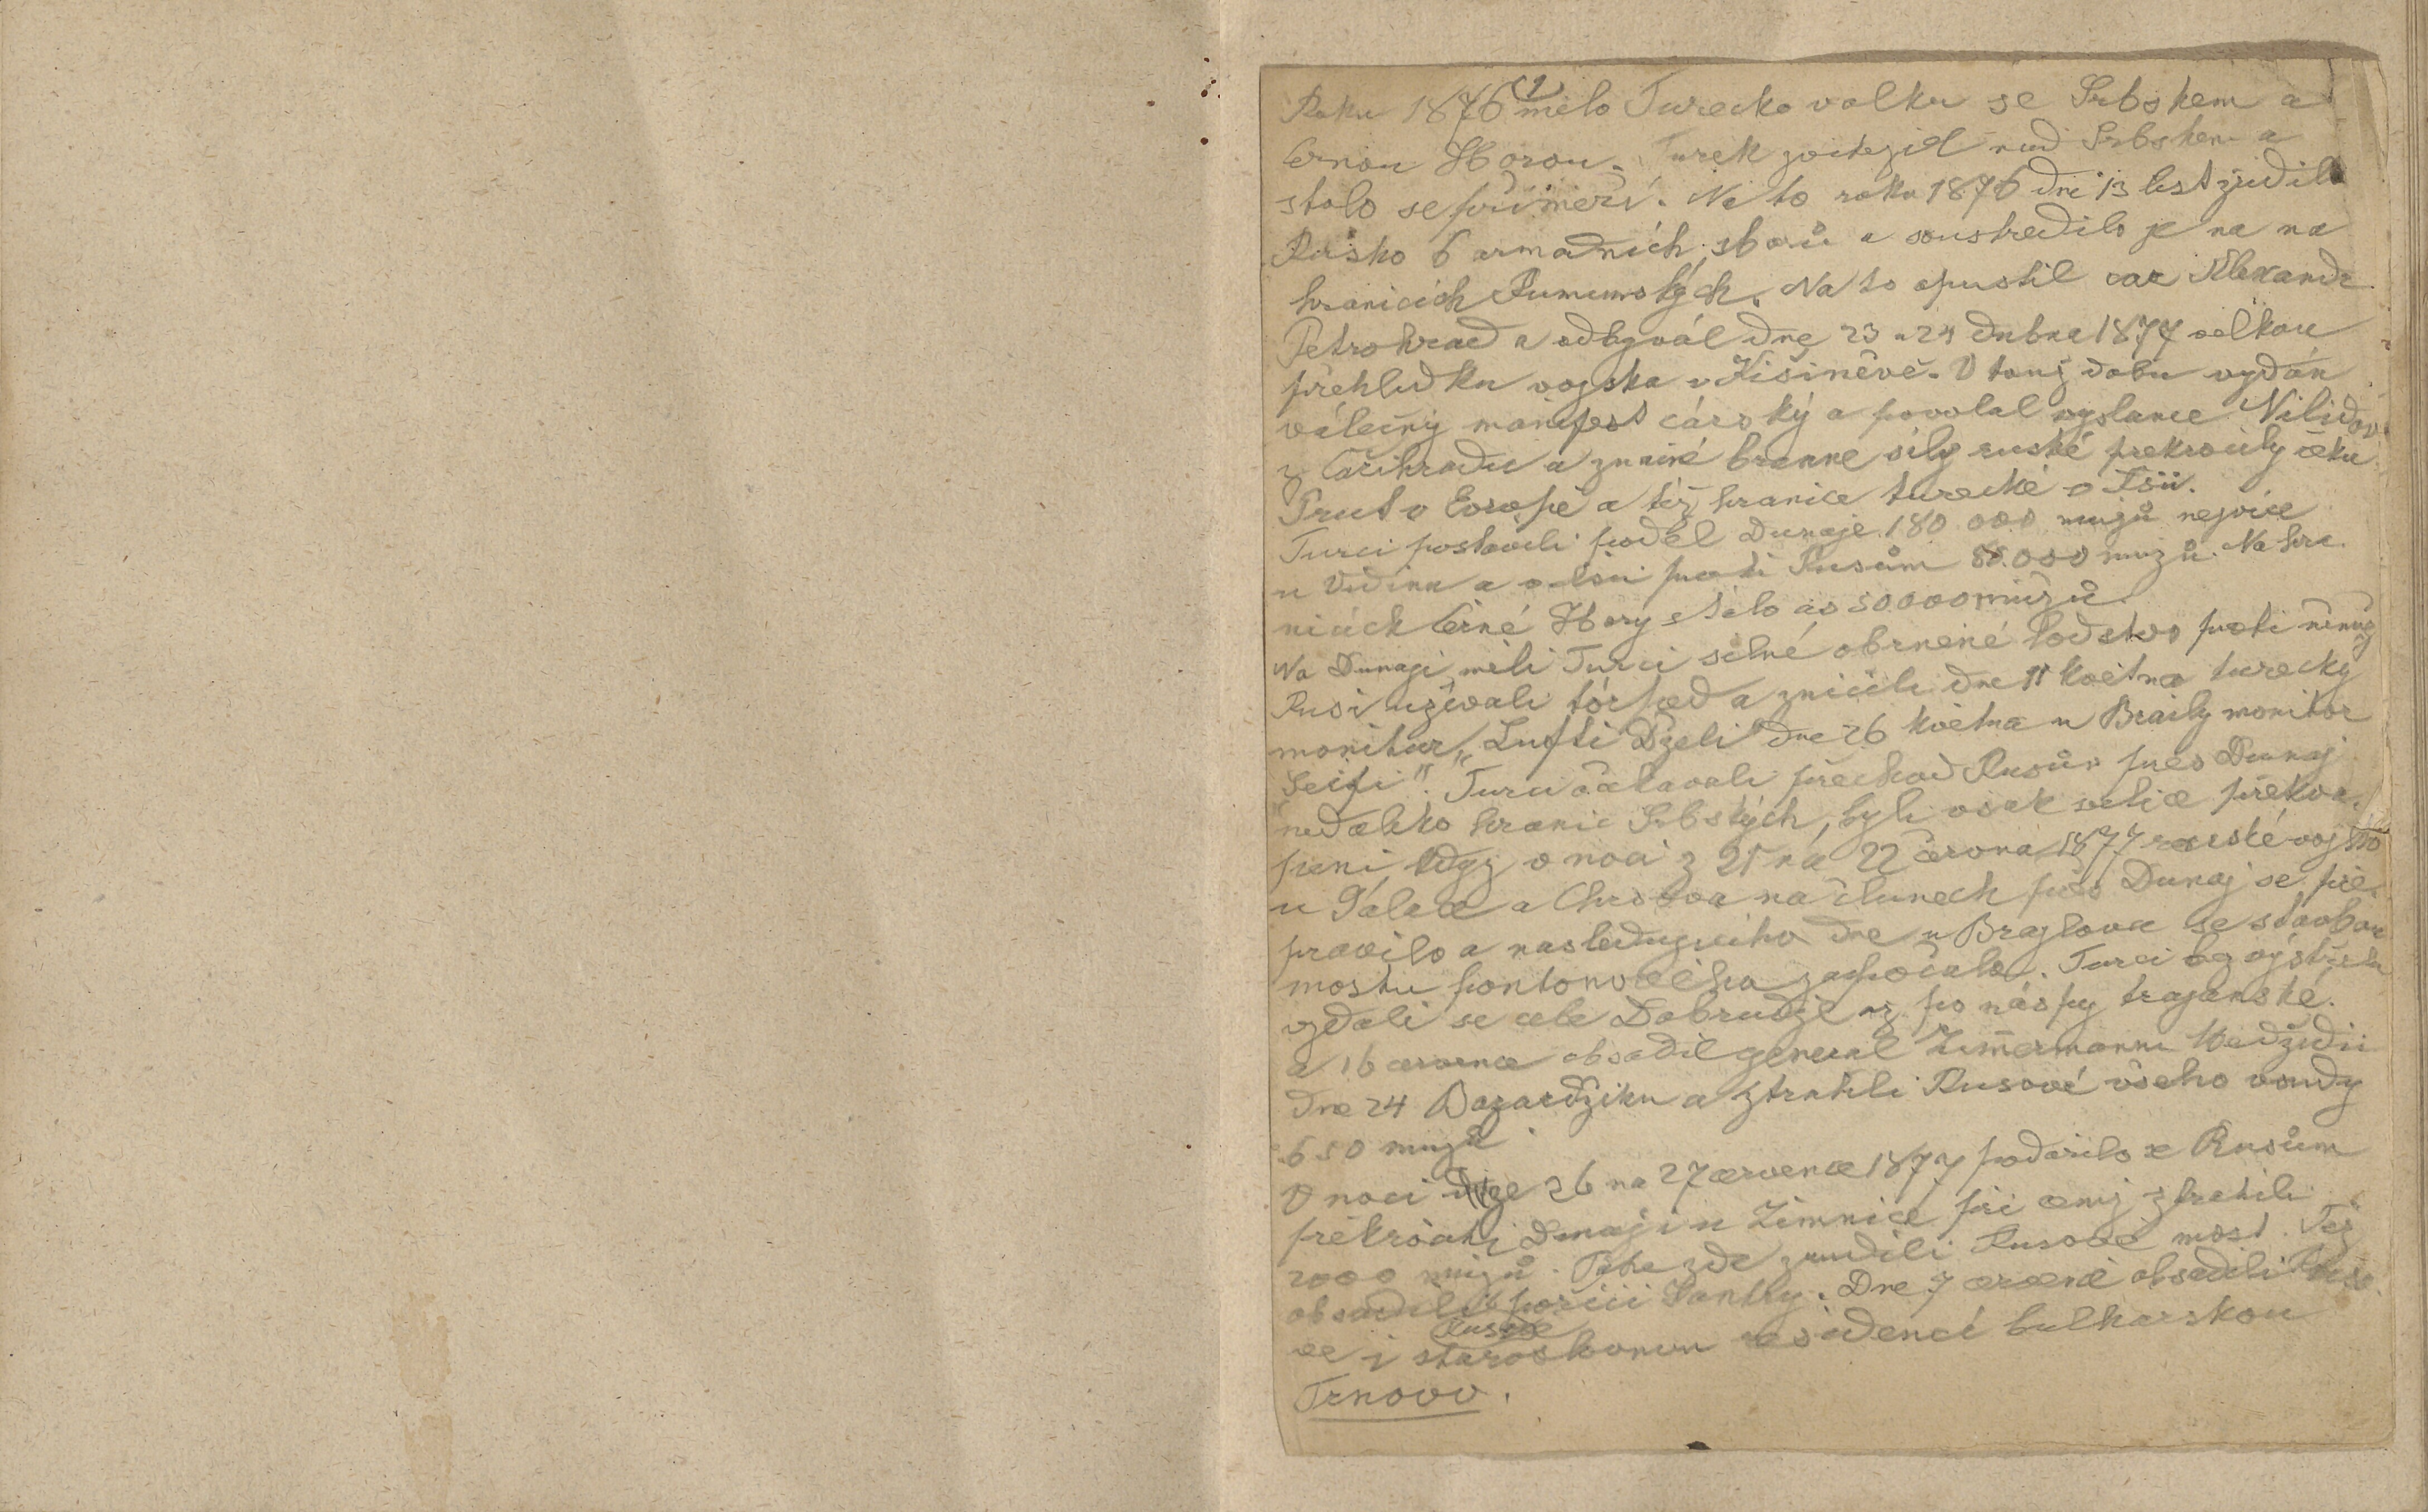 (1)
Roku 1876 mělo Turecko valku se Srbskem a
Černou Horou. Turek zvitezil nad Srbskem a
stalo se přiměří. Na to roku 1876 dne 13 list zřidilo
Rusko 6 armadních sborů a soustředilo je na na
hranicích Rumunských. Na to opustil car Alexandr
Petrohrad a odbyvál dne 23 a 24 dubna 1877 velkou
přehlidku vojska v Kišiněvě. V touž dobu vydán
válečný manifest cárský a povolal vyslance Nilidov
z Cařihradu a znainé branne síly ruské překročily řeku
Prut v Evropě a též hranice turecké v Asii.
Turci postavili podél Dunaje 180 000 mužů nejvíce
u Vidina a v Asii proti Rusům 80.000 mužů. Na hra
nicích Černé Hory stálo as 50000 mužů.
Na Dunaji měli Turci silné obrněné loďstvo proti němuž
Rusi užívali tórped a zničili dne 11 května turecký
monitor „Lufti Dželi" dne 26 května u Braily monitor
„Seifi". Turci očekavali přechod Rusům přes Dunaj
nedaleko hranic Srbských, byli však velice překva-
peni když v noci z 21 na 22 června 1877 ruské vojsko
u Galace a Chrsova na člunech přes Dunaj se pře-
pravilo a nasledujiciho dne u Brajlova se stavbou
mostu pontonového započalo. Turci bez výstřelu
vzdali se cele Dobrudže až po náspy trajanské.
a 16 července obsadil general Zimermann Medžidii
dne 24 Bazardžiku a ztratili Rusové všeho vsudy
650 mužů.
V noci dne 26 na 27 července 1877 podařilo se Rusům
překročiti Dunaj i u Zimnice při čemž ztratili
2000 mužů. zde zřidili Rusové most. Též
obsadili posici Jantry. Dne 7 července obsadili Ruso-
Rusove
ve i staroslavnou residenci bulharskou
Trnovo.